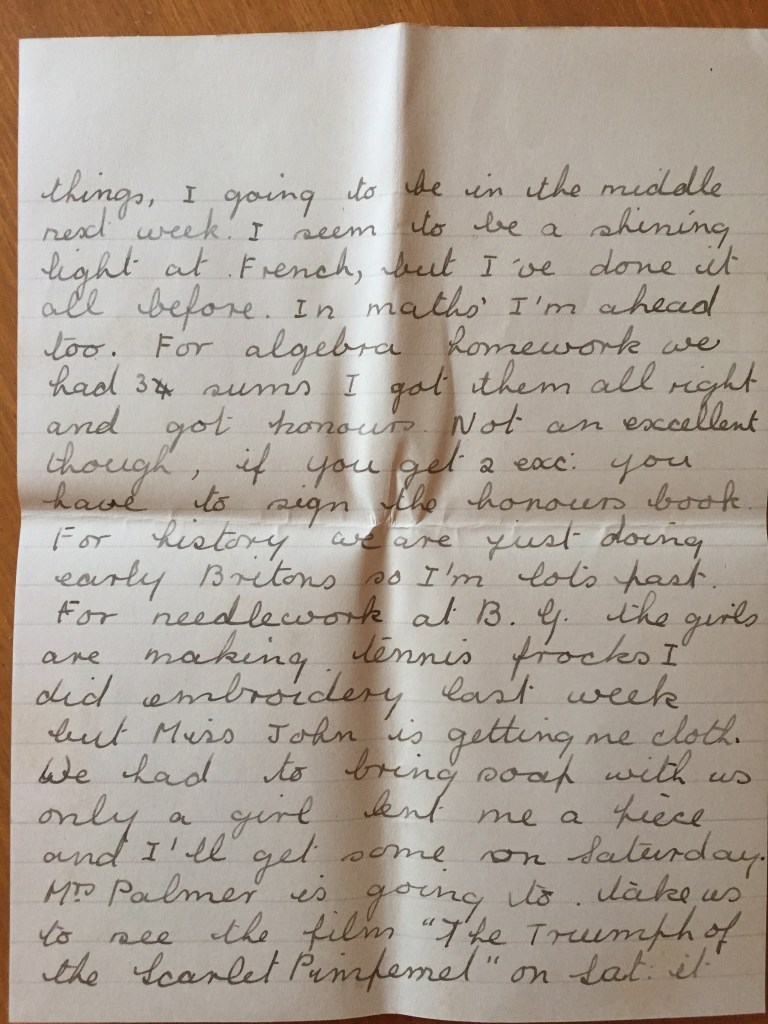 things, I going to be in the middle
next week. I seem to be a shining
light at French, but I've done it
all before. In maths' I'm ahead
too. For algebra homework we
had 34 sums I got them all right
and got honours. Not an excellent
though, if you get a exc: you
have to sign the honours book.
For history we are just doing
early Britons so I'm lots past.
For needlework at B. G. the girls
are making tennis frocks I
did embroidery last week
but Miss John is getting me cloth.
We had to bring soap with us
only a girl lent me a piece
and I'll get some on Saturday.
Mrs Palmer is going to take us
to see the film "The Triumph of
the Scarlet Pimpernel" on Sat. it